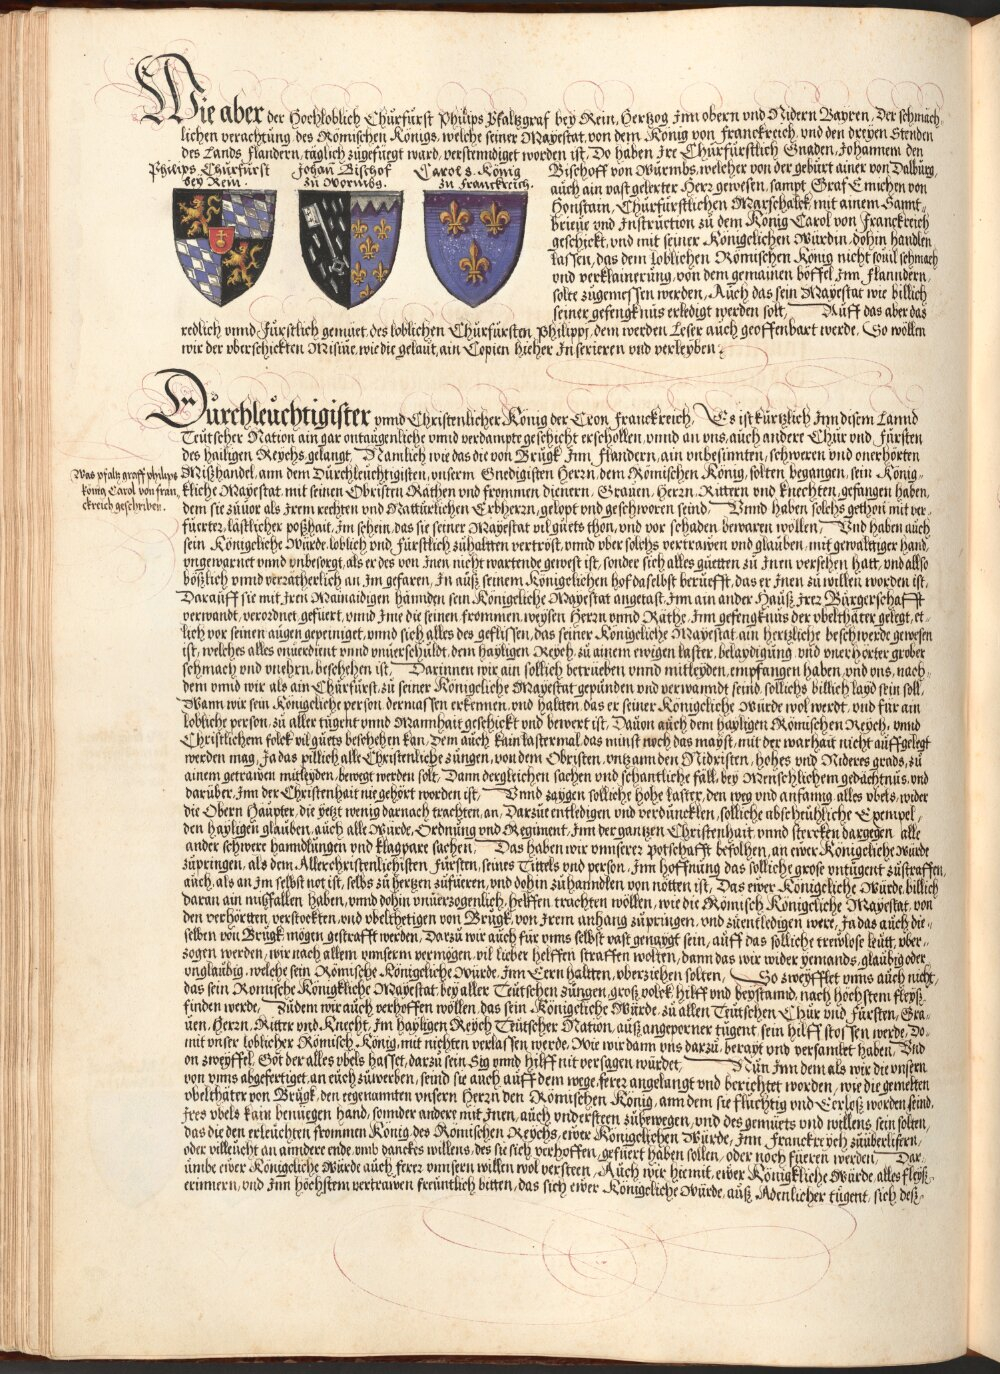 Wie aber der Hochloblich Churfürst Philips Pfaltzgraf bey Rein, Hertzog Inn obern vnd Nidern Bayren, Der schmäch,
lichen verachtung des Römischen Königs, welche seiner Mayestat, von dem König von Franckreich, vnd den dreyen Stenden
des Lands Flandern, täglich zugefüegt ward, verstenndiget worden ist, Do haben Ire Churfürstlich Gnaden, Johannem den
Philips Churfürst bey Rein.
Johan Bischof zu Wormbs.
Carol 8. König zu Franckreich.
Bischoff von Wurmbs, welcher von der gebürt ainer von Dalbürg,
auch ain vast gelerter Herr gewesen, sampt Graf Emichen von
Honstain, Churfürstlichen Marschalck, mit ainem Sannt,,
brieue vnd Instruction zu dem König Carol von Franckreich
geschickt, vnd mit seiner Königclichen Würdin, dohin handlen
lassen, das dem loblichen Römischen König nicht souil schmach
vnd verklainerung, von dem gemainen böffel Inn Flanndern,
solte zügemessen werden, Auch das sein Mayestat wie billich
seiner gefengknus erledigt werden solt, Auff das aber das
redlich vnnd Fürstlich gemüet, des loblichen Churfürsten Philipps, dem werden Leser auch geoffenbart werde, So wöllen
wir der vberschickten Missiue, wie die gelaut, ain Copien hieher Inserieren vnd verleyben.
Durchleuchtigister vnnd Christenlicher König der Cron Franckreich, Es ist kürtzlich Inn disem Lannd
Teutscher Nation ain gar ontaugenliche vnnd verdampte geschicht erschollen, vnnd an vns, auch andere Chur vnd Fürsten
des hailigen Reychs gelangt, Nämlich wie das die von Brügk Inn Flandern, ain vnbesinnten, schweren vnd onerhörten
Was Pfaltzgraff Philips
könig Carol von Fran,
ckreich geschriben.
Mißhandel, ann dem Durchleuchtigisten, vnserm Gnedigisten Herrn, dem Römischen König, solten begangen, sein König,,
kliche Mayestat, mit seinen Obristen Räthen vnd frommen dienern, Grauen, Herrn, Rittern vnd knechten, gefangen haben,
dem sie zuuor als Irem rechten vnd Nattürlichen Erbherrn, gelopt vnd geschworen seind, Vnnd haben solchs gethon mit ver,,
füerter, lästlicher poßhait, Im schein, das sie seiner Mayestat vil guets thon, vnd vor schaden bewaren wöllen, Vnd haben auch
sein Königcliche Würde, loblich vnd Fürstlich zuhaltten vertröst, vnnd vber solchs vertrawen vnd glauben, mit gewaltiger hand,
vngewarnet vnnd vnbesorgt, als er des von Inen nicht wartende gewest ist, sonder sich alles guetten zu Inen versehen hatt, vnd allso
bößlich vnnd verrätherlich an Im gefaren, In auß seinem Königclichen hof daselbst berüefft, das er Inen zu willen worden ist,
Darauff sie mit Iren Mainaidigen hännden sein Königcliche Mayestat angetast, Im ain ander Hauß Irer Bürgerschafft
verwandt, verordnet, gefüert, vnnd Ime die seinen frommen, weysen Herrn vnnd Räthe, Inn gefengknus der vbelthäter gelegt, et,,
lich vor seinen augen gepeiniget, vnnd sich alles des geflissen, das seiner Königcliche Mayestat, ain hertzliche beschwerde gewesen
ist, welches alles onuerdient vnnd vnuerschuldt, dem hayligen Reych, zu ainem ewigen laster, belaydigung, vnd vnerhörter grober
schmach vnd vnehrn, beschehen ist, Darinnen wir ain sollich betrüeben vnnd mitleyden, empfangen haben, vnd vns, nach,
dem vnnd wir als ain Churfürst, zu seiner Königcliche Mayestat gepunden vnd verwanndt seind, sollichs billich layd sein soll,
Wann wir sein Königcliche person dermassen erkennen, vnd haltten, das er seiner Königcliche Würde wol werdt, vnd für ain
lobliche person, zu aller tugent vnnd Mannhait geschickt vnd bewert ist, Dauon auch dem hayligen Römischen Reych, vnnd
Christlichem folck vil guets beschehen kan, Dem auch kain lastermal, das minst noch das mayst, mit der warhait nicht auffgelegt
werden mag, Ja das pillich alle Christenliche zungen, von dem Obristen, vntz ann den Nidristen, hohes vnd Nideres grads, zu
ainem getrawen mitleyden, bewegt werden solt, Dann dergleichen sachen vnd schantliche fäll, bey Menschlichem gedächtnus, vnd
darüber, Inn der Christenhait nie gehört worden ist, Vnnd zaygen solliche hohe laster, den weg vnd anfanng alles vbels, wider
die Obern Häupter, die yetzt wenig darnach trachten, an, Darzu entledigen vnd verduncklen, solliche abscheuhliche Exempel,
den hayligen glauben, auch alle Würde, Ordnung vnd Regiment, Inn der gantzen Christenhait, vnnd stercken dargegen alle
ander schwere hanndlungen vnd klagpare sachen, Das haben wir vnnserer Potschafft befolhen, an ewer Königcliche Würde
zupringen, als dem Allerchristenlichisten Fürsten, seines Tittels vnd person, Inn hoffnung das solliche grose vntugent zustraffen,
auch, als an Im selbst not ist, selbs zu hertzen zufüeren, vnd dohin zuhanndlen von nötten ist, Das ewer Königcliche Würde, billich
daran ain mißfallen haben, vnnd dohin vnuerzogenlich, helffen trachten wöllen, wie die Römisch Königcliche Mayestat, von
den verhörtten, verstockten, vnd vbelthetigen von Brügk, von Irem anhang zupringen, vnd zuentledigen were, Ja das auch die,,
selben von Brügk mögen gestrafft werden, Darzu wir auch für vnns selbst vast genaygt sein, auff das solliche trewlose leütt, vber,,
zogen werden, wir nach allem vnnserm vermögen, vil lieber helffen straffen wolten, dann das wir wider yemands, glaubig oder
vnglaubig, welche sein Römische Königcliche Würde, Inn Eern haltten, vberziehen solten, So zweyfflet vnns auch nicht,
das sein Romische Königkliche Mayestat, bey aller Teutschen zungen, groß volck, hilff vnd beystannd, nach höchstem fleyß,
finden werde, Zudem wir auch verhoffen wöllen, das sein Königcliche Würde, zu allen Teutschen Chur vnd Fürsten, Gra,,
uen, Herrn, Ritter vnd Knecht, Im hayligen Reych Teutscher Nation, auß angeporner tugent sein hilff stossen werde, Do,,
mit vnser loblicher Römisch König, mit nichten verlassen werde, Wie wir dann vns darzu, berayt vnd versamlet haben, Vnd
on zweyffel, Got der alles vbels hasset, darzu sein Sig vnnd hilff nit versagen würdet, Nun Inn dem als wir die vnsern
von vnns abgefertiget, an euch zuwerben, seind sie auch auff dem wege, ferer angelangt vnd berichtet worden, wie die gemelten
vbelthäter von Brügk, den eegenannten vnsern Herrn den Römischen König, ann dem sie fluchtig vnd Eerloß worden seind,
Ires vbels kain benüegen hand, sonnder andere mit Inen, auch vndersteen zubewegen, vnd des gemuets vnd willens sein solten,
das die den erleuchten frommen König, des Römischen Reychs, ewer Königclichen Würde, Inn Franckreych zuüberlifern,
oder villeucht an anndere ende, vmb danckes willens, des sie sich verhoffen, gefüert haben sollen, oder noch füeren werden, Dar,,
umbe ewer Königcliche Würde auch ferer vnnsern willen wol versteen, Auch wir hiemit, ewer Königkliche Würde, alles fleyß,
erinnern, vnd Inn höchstem vertrawen freuntlich bitten, das sich ewer Königcliche Würde, auß Adenlicher tugent, sich deß,